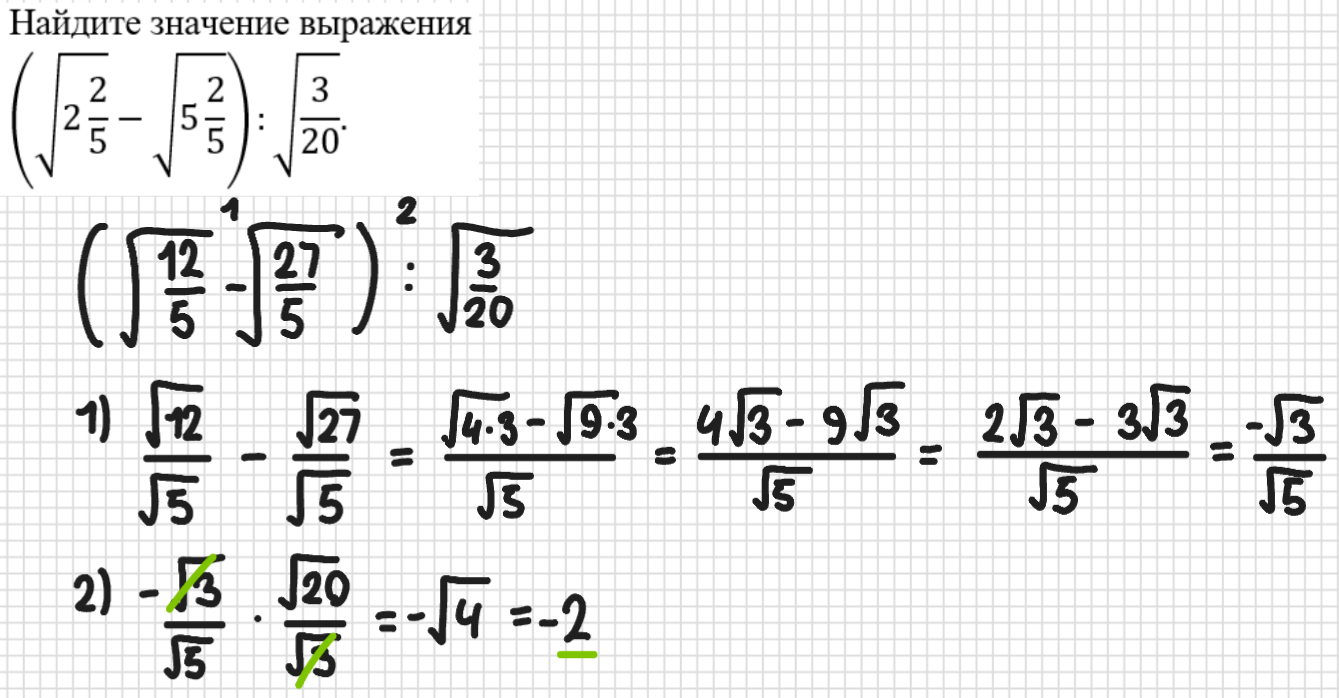 Найдите значение выражения
(√(2 2/5) − √(5 2/5)) : √(3/20).
1 2
(√(12/5) - √(27/5)) : √(3/20)
1) √12/√5 - √27/√5 = (√4·3 - √9·3)/√5 = (4√3 - 9√3)/√5 = (2√3 - 3√3)/√5 = -√3/√5
2) -√3/√5 · √20/√3 = -√4 = -2